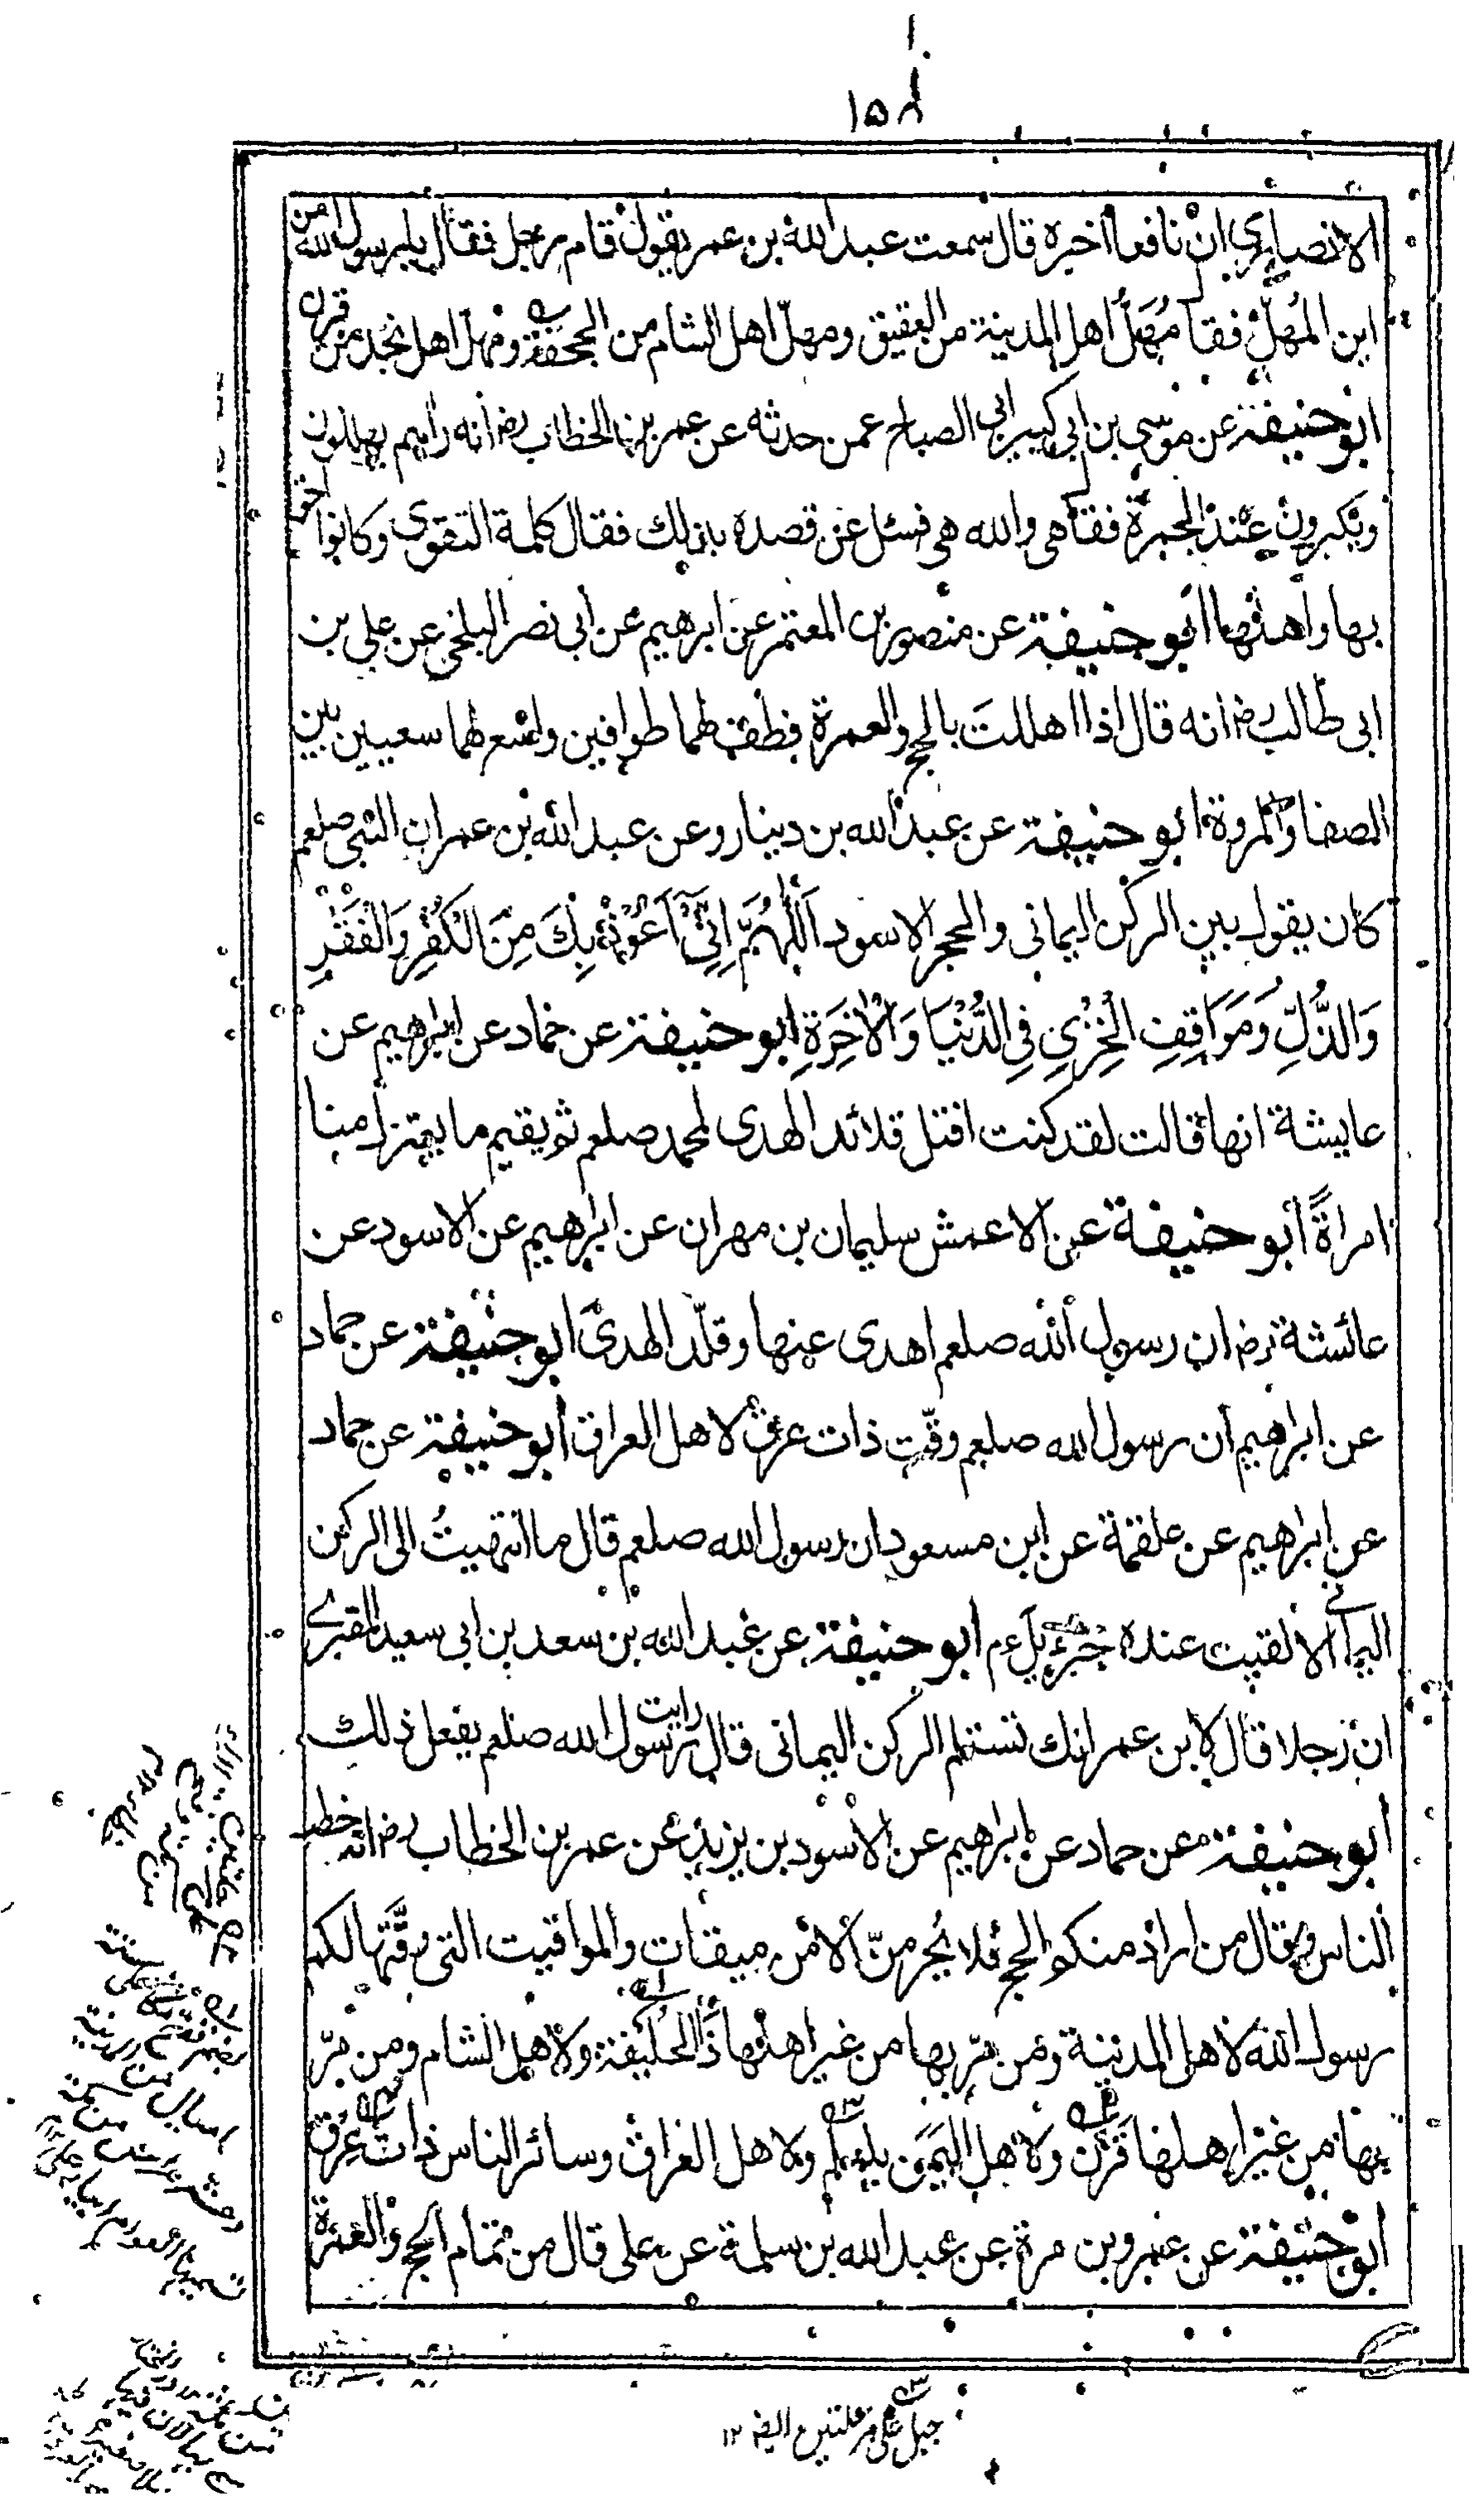 ١٥٨
الانصاري ان نافعا اخبره قال سمعت عبد الله بن عمر يقول قام رجل فقال يا رسول الله من
اين المُهَلّ فقا مُهَلُّ اهل المدينة من العقيق ومهلّ اهل الشام من الجحفة ومهل اهل نجد من قرن
ابو حنيفة عن موسى بن ابي كبير ابي الصباح عمن حدثه عن عمر بن الخطاب رض انه راٰهم يهللون
ويكبرون عند الجمرة فقا هى والله هى فسئل عن قصده بذلك فقال كلمة التقوى وكانوا احق
بها واهلها ابو حنيفة عن منصور بن المعتمر عن ابرهيم عن ابى نصر البلخى عن علي بن
ابى طالب رض انه قال اذا اهللتَ بالحج والعمرة فطف لهما طوافين واسع لهما سعيين بين
الصفا والمروة ابو حنيفة عن عبد الله بن دينار وعن عبد الله بن عمر ان النبى صلعم
كان يقول بين الركن اليمانى والحجر الاسود اَللّٰهُمَّ اِنِّىْ اَعُوْذُ بِكَ مِنَ الْكُفْرِ وَالْفَقْرِ
وَالذُّلِّ وَمَوَاقِفِ الْخِزْيِ فِي الدُّنْيَا وَالْاٰخِرَةِ ابو حنيفة عن حماد عن ابرهيم عن
عايشة انها قالت لقد كنت افتل قلائد الهدى لمحمد صلعم ثم يقيم ما يعتزل منا
امراةً ابو حنيفة عن الاعمش سليمان بن مهران عن ابرهيم عن الاسود عن
عائشة رض ان رسول الله صلعم اهدى عنها وقلّد الهدى ابو حنيفة عن حماد
عن ابرهيم ان رسول الله صلعم وقّت ذات عرق لاهل العراق ابو حنيفة عن حماد
عن ابرهيم عن علقمة عن ابن مسعود ان رسول الله صلعم قال ما انتهيتُ الى الركن
اليماني الا لقيت عنده جبرءيل ءم ابو حنيفة عن عبد الله بن سعد بن ابى سعيد المقبرے
ان رجلا قال لابن عمر انك تستلم الركن اليمانى قال رايت رسول الله صلعم يفعل ذلك
ابو حنيفة عن حماد عن ابرهيم عن الاسود بن يزيد عن عمر بن الخطاب رض انه خطب
الناس وقال من اراد منكم الحج فلا يحرمنّ الا من ميقات والمواقيت التى وقّتها لكم
رسول الله لاهل المدينة ومن مرّ بها من غير اهلها ذا الحليفة ولاهل الشام ومن مرّ
بها من غير اهلها قرن ولاهل اليمن يلملم ولاهل العراق وسائر الناس ذات عرق
ابو حنيفة عن عمرو بن مرة عن عبد الله بن سلمة عن على قال من تمام الحج والعمرة